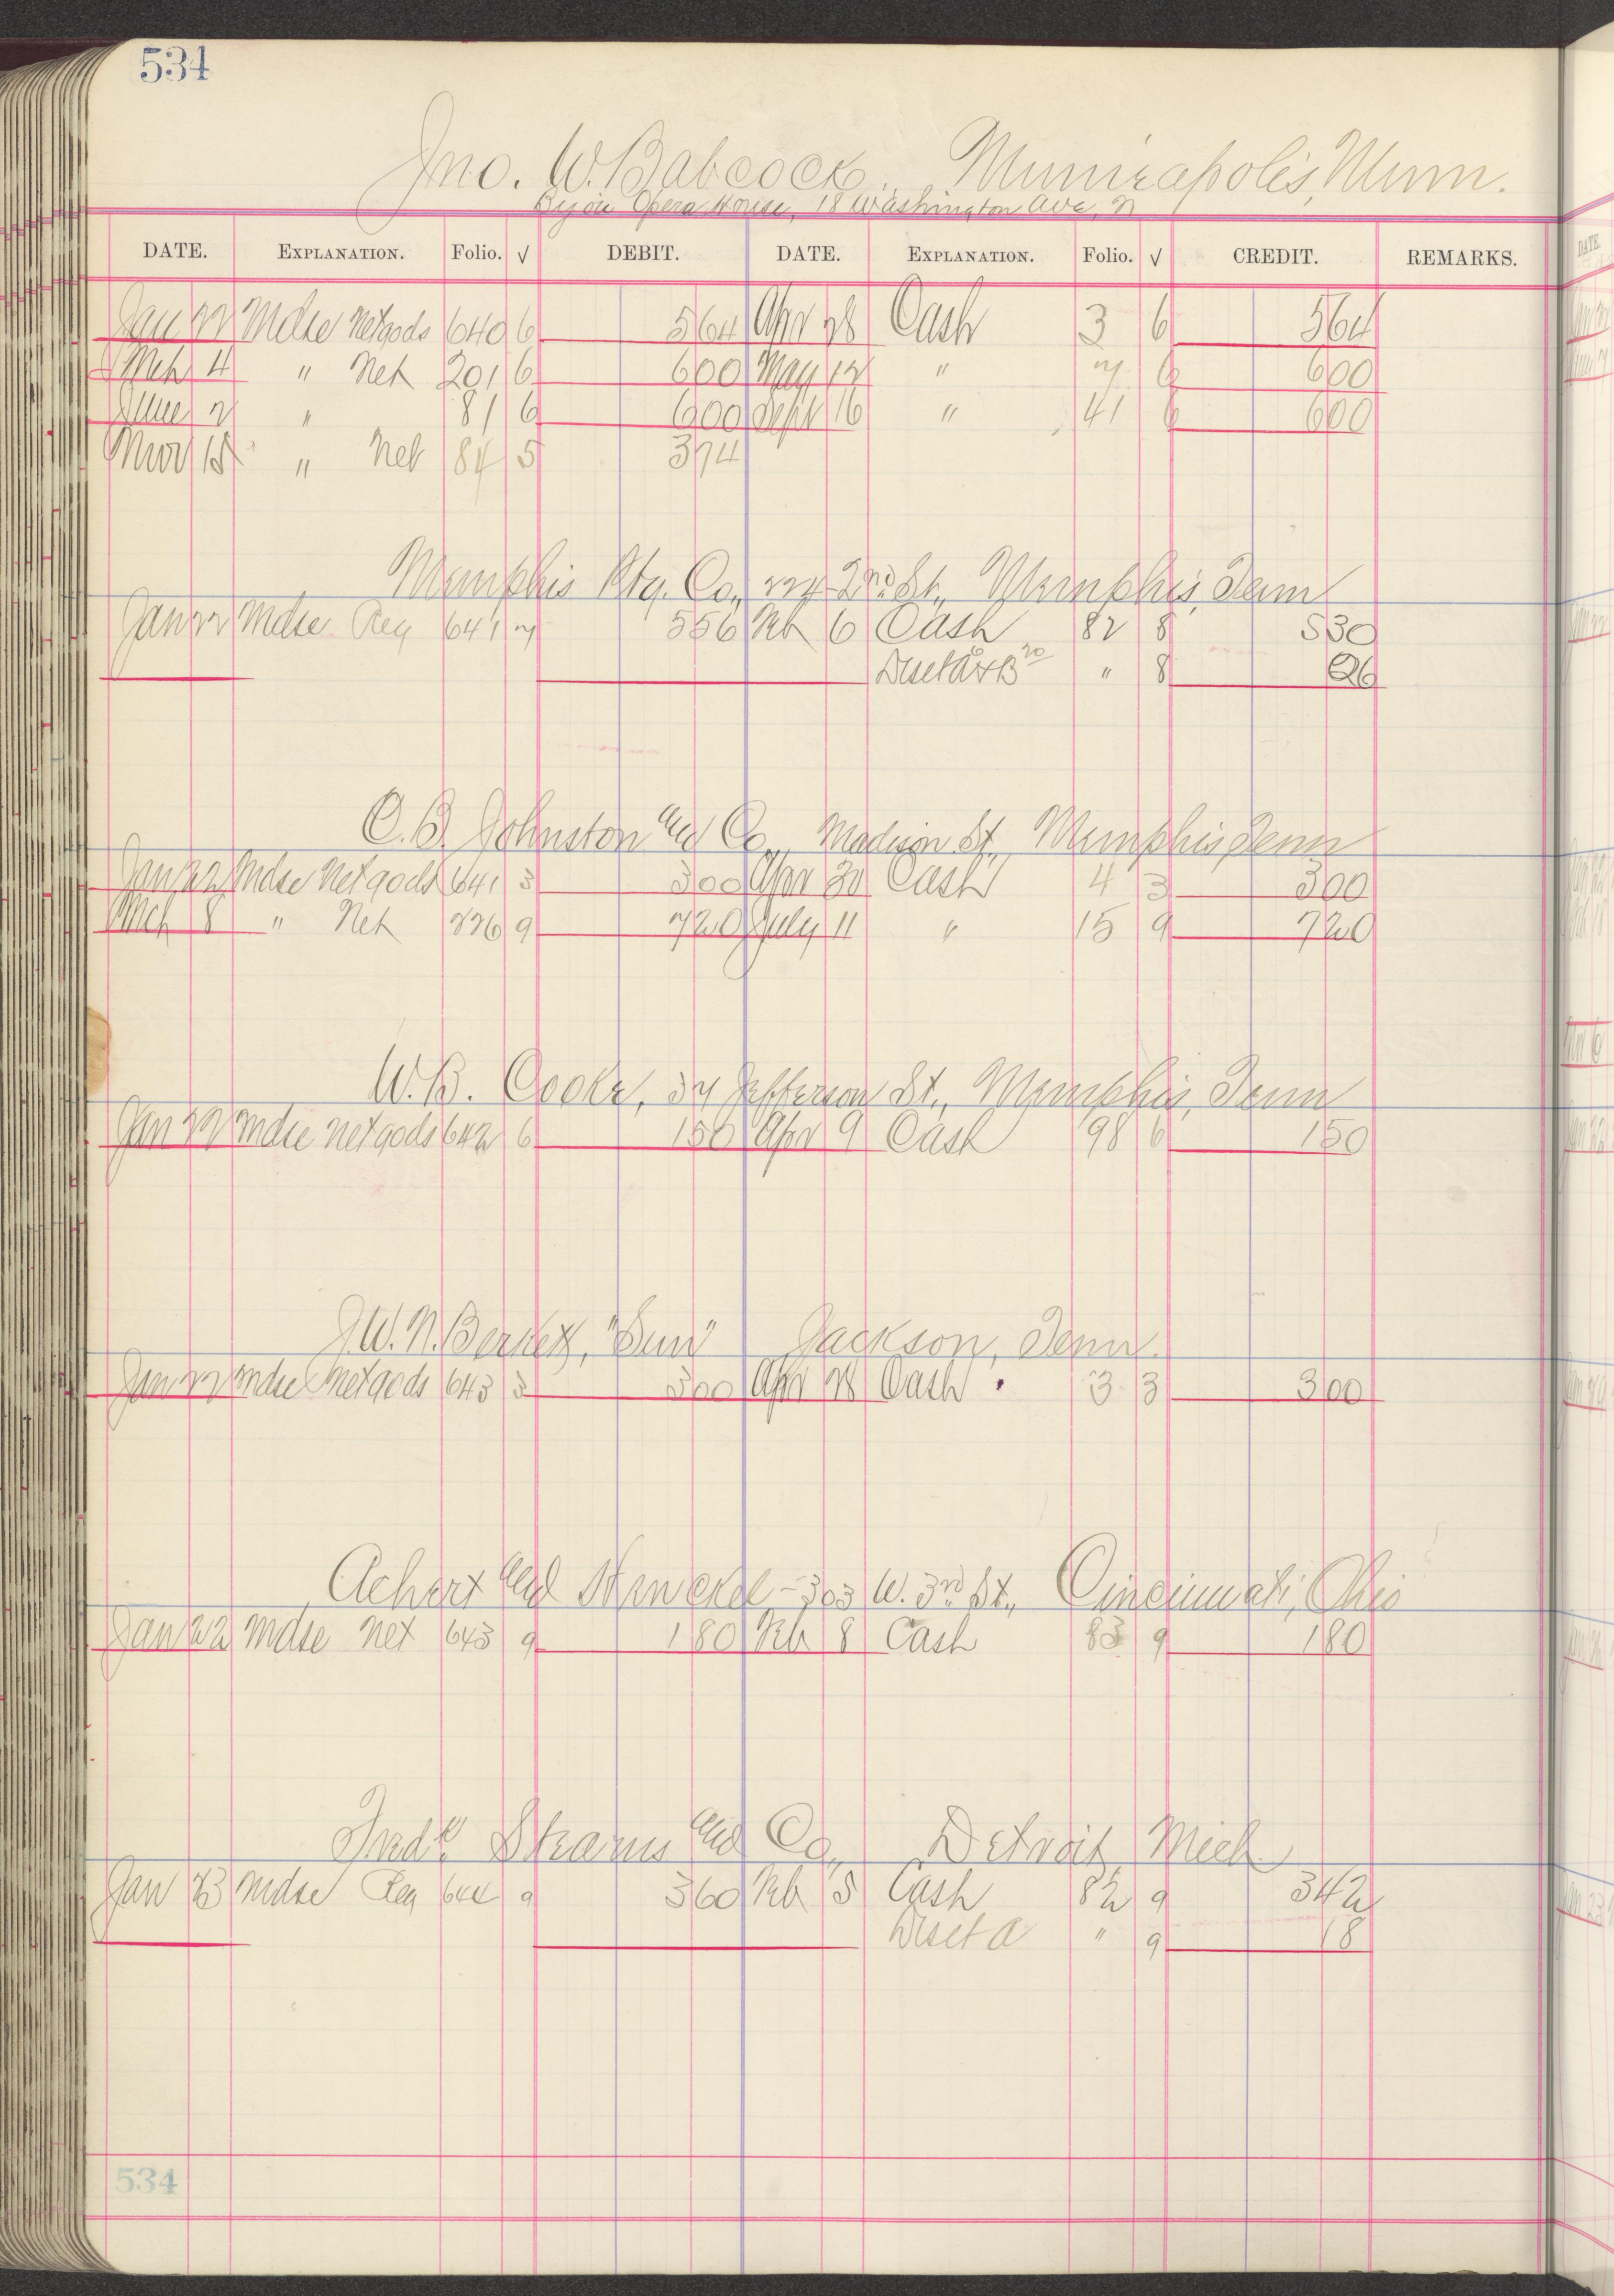 534
Jno. W. Babcock, Minneapolis, Minn.
Bijou Opera House, 18 Washington Ave, N
DATE. EXPLANATION. Folio. √ DEBIT. DATE. EXPLANATION. Folio. √ CREDIT. REMARKS.
Jan 22 Mdse Net gods 640 6 564 Apr 28 Cash 3 6 564
Mch 4 " Net 201 6 600 May 12 " 7 6 600
June 2 " 81 6 600 Sept 16 " 41 6 600
Nov 15 " Net 84 5 374
Memphis Ptg. Co., 2nd St., Memphis, Tenn
Jan 22 Mdse Reg 641 7 556 Feb 6 Cash 82 8 530
Disct A & B 20 " 8 26
C. B. Johnston and Co., Madison St., Memphis, Tenn
Jan 22 Mdse Net gods 641 3 300 Apr 30 Cash 4 3 300
Mch 8 " Net 226 9 720 July 11 " 15 9 720
W. B. Cooke, 34 Jefferson St., Memphis, Tenn
Jan 22 Mdse Net gods 642 6 150 Apr 9 Cash 98 6 150
J. W. N. "Sun" Jackson, Tenn.
Jan 22 Mdse Net gods 643 3 300 Apr 28 Cash 3 3 300
Achert and Henckel - 303 W. 3rd St., Cincinnati, Ohio
Jan 22 Mdse Net 643 9 180 Feb 8 Cash 83 9 180
Fredk Stearns and Co., Detroit, Mich.
Jan 23 Mdse Reg 644 9 360 Feb 5 Cash 82 9 342
Disct A " 9 18
534